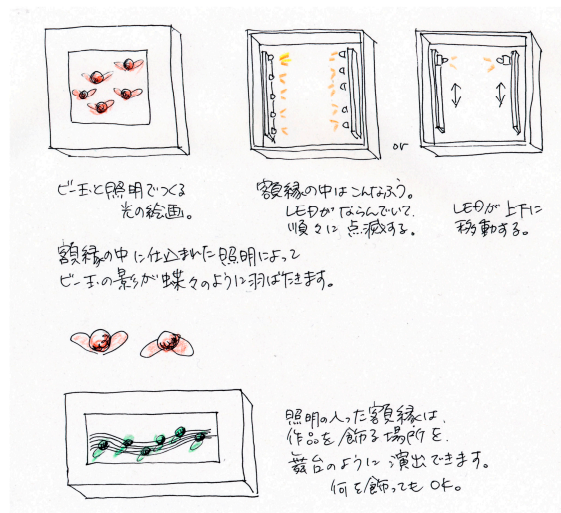 ビー玉と照明でつくる
光の絵画。
額縁の中はこんなふう。
LEDがならんでいて、
順々に点滅する。
or
LEDが上下に
移動する。
額縁の中に仕込まれた照明によって
ビー玉の影が蝶々のように羽ばたきます。
照明の入った額縁は、
作品を飾る場所を、
舞台のように演出できます。
何を飾ってもOK。